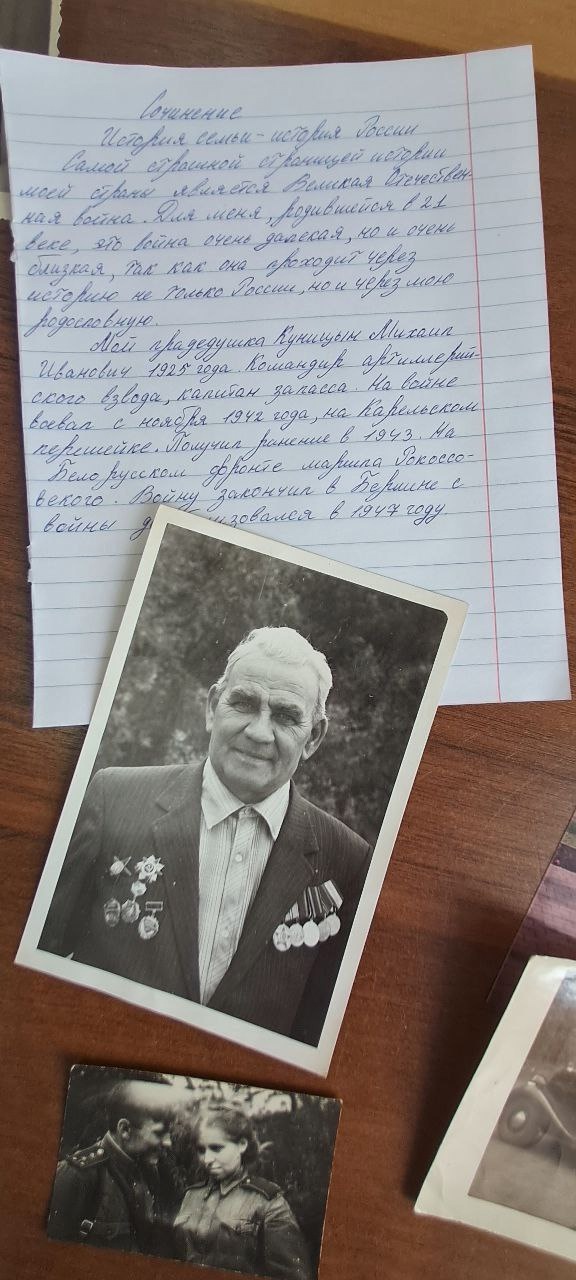 Сочинение
История семьи - история России
Самой страшной страницей истории
моей страны является Великая Отечествен-
ная война. Для меня, родившейся в 21
веке, это война очень далекая, но и очень
близкая, так как она проходит через
историю не только России, но и через мою
родословную.
Мой прадедушка Куницын Михаил
Иванович 1925 года. Командир артиллерий-
ского взвода, капитан запасса. На войне
воевал с ноября 1942 года, на Карельском
перешейке. Получил ранение в 1943. На
Белорусском фронте маршла Рокоссо-
вского. Войну закончил в Берлине с
войны в 1947 году